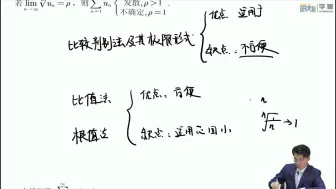 若 lim ⁿ√uₙ = ρ, 则 Σ uₙ { 发散, ρ > 1
不确定, ρ = 1
比较判别法及其极限形式 { 优点: 适用于
缺点: 不方便
比值法
根值法
{ 优点: 方便
缺点: 适用范围小
n
ⁿ√n → 1